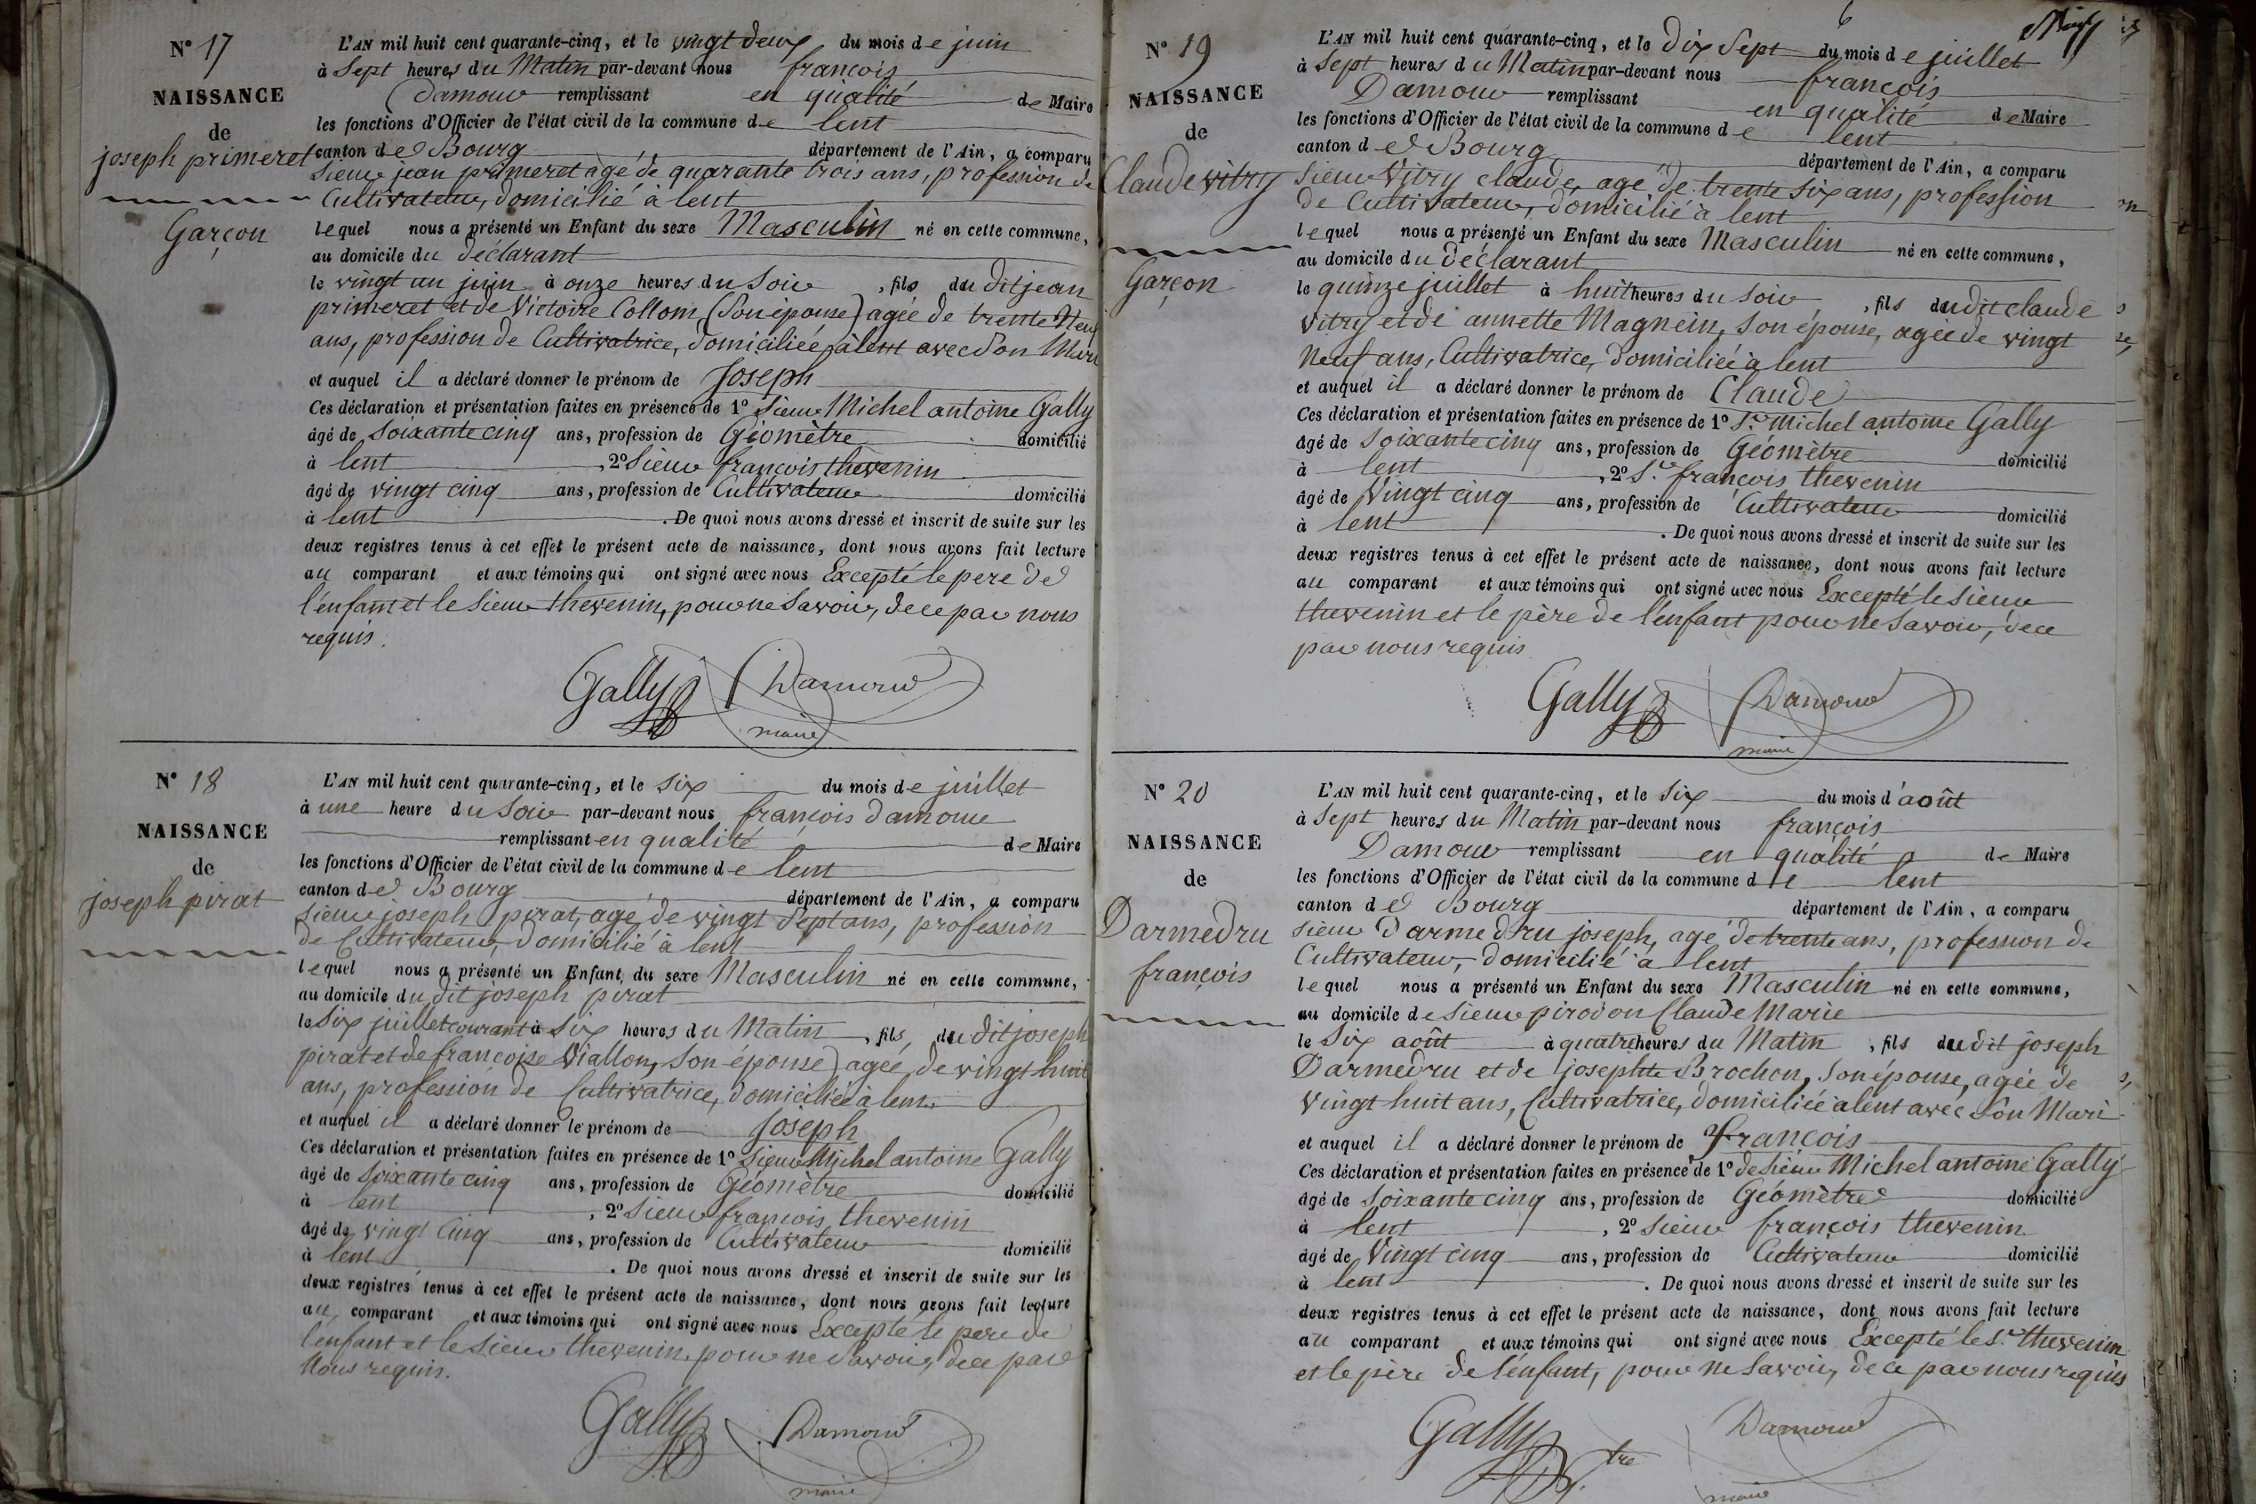 N° 17
NAISSANCE
de
joseph primeret
Garçon
L'AN mil huit cent quarante-cinq, et le vingt deux du mois de juin
à Sept heures du Matin par-devant nous françois
Damour remplissant en qualité de Maire
les fonctions d'Officier de l'état civil de la commune de lent
canton de Bourg département de l'Ain, a comparu
Sieur jean primeret agé de quarante trois ans, profession de
Cultivateur, domicilié à lent
lequel nous a présenté un Enfant du sexe Masculin né en cette commune,
au domicile du déclarant
le vingt un juin à onze heures du Soir, fils du dit jean
primeret et de Victoire Collom (Son épouse) agée de trente Neuf
ans, profession de Cultivatrice, domiciliée à lent avec Son Mari
et auquel il a déclaré donner le prénom de Joseph
Ces déclaration et présentation faites en présence de 1° Sieur Michel antoine Gally
âgé de Soixante cinq ans, profession de Géomètre domicilié
à lent, 2° Sieur françois thevenin
âgé de vingt cinq ans, profession de Cultivateur domicilié
à lent. De quoi nous avons dressé et inscrit de suite sur les
deux registres tenus à cet effet le présent acte de naissance, dont nous avons fait lecture
au comparant et aux témoins qui ont signé avec nous Excepté le pere de
l'enfant et le Sieur thevenin, pour ne Savoir, de ce par nous
requis.
Gally Damour
maire
N° 18
NAISSANCE
de
joseph pirat
L'AN mil huit cent quarante-cinq, et le Six du mois de juillet
à une heure du Soir par-devant nous françois damour
remplissant en qualité de Maire
les fonctions d'Officier de l'état civil de la commune de lent
canton de Bourg département de l'Ain, a comparu
Sieur joseph pirat, agé de vingt Sept ans, profession
de Cultivateur, domicilié à lent
lequel nous a présenté un Enfant du sexe Masculin né en cette commune,
au domicile du dit joseph pirat
le Six juillet courant à Six heures du Matin, fils du dit joseph
pirat et de françoise Viallon, Son épouse) agée de vingt huit
ans, profession de Cultivatrice, domiciliée à lent
et auquel il a déclaré donner le prénom de joseph
Ces déclaration et présentation faites en présence de 1° Sieur Michel antoine Gally
âgé de Soixante cinq ans, profession de Géomètre domicilié
à lent, 2° Sieur françois thevenin
âgé de vingt cinq ans, profession de Cultivateur domicilié
à lent. De quoi nous avons dressé et inscrit de suite sur les
deux registres tenus à cet effet le présent acte de naissance, dont nous avons fait lecture
au comparant et aux témoins qui ont signé avec nous Excepté le pere de
l'enfant et le Sieur thevenin pour ne Savoir, de ce par
Nous requis.
Gally Damour
maire
6
N° 19
NAISSANCE
de
Claude vitry
Garçon
L'AN mil huit cent quarante-cinq, et le Dix Sept du mois de juillet
à Sept heures du Matin par-devant nous françois
Damour remplissant en qualité de Maire
les fonctions d'Officier de l'état civil de la commune de lent
canton de Bourg département de l'Ain, a comparu
Sieur Vitry claude, agé de trente Six ans, profession
de Cultivateur, domicilié à lent
lequel nous a présenté un Enfant du sexe Masculin né en cette commune,
au domicile du déclarant
le quinze juillet à huit heures du Soir, fils du dit claude
Vitry et de annette Magnein, Son épouse, agée de vingt
Neuf ans, Cultivatrice, domiciliée à lent
et auquel il a déclaré donner le prénom de Claude
Ces déclaration et présentation faites en présence de 1° Sr Michel antoine Gally
âgé de Soixante cinq ans, profession de Géomètre domicilié
à lent, 2° Sr françois thevenin
âgé de Vingt cinq ans, profession de Cultivateur domicilié
à lent. De quoi nous avons dressé et inscrit de suite sur les
deux registres tenus à cet effet le présent acte de naissance, dont nous avons fait lecture
au comparant et aux témoins qui ont signé avec nous Excepté le Sieur
thevenin et le père de l'enfant pour ne Savoir, de ce
par nous requis
Gally Damour
maire
N° 20
NAISSANCE
de
Darmedru
françois
L'AN mil huit cent quarante-cinq, et le Six du mois d'août
à Sept heures du Matin par-devant nous françois
Damour remplissant en qualité de Maire
les fonctions d'Officier de l'état civil de la commune de lent
canton de Bourg département de l'Ain, a comparu
Sieur Darmedru joseph, agé de trente ans, profession de
Cultivateur, domicilié à lent
lequel nous a présenté un Enfant du sexe Masculin né en cette commune,
au domicile de Sieur pirodon Claude Marie
le Six août à quatre heures du Matin, fils du dit joseph
Darmedru et de josephte Brochon, Son épouse, agée de
vingt huit ans, Cultivatrice, domiciliée à lent avec Son Mari
et auquel il a déclaré donner le prénom de françois
Ces déclaration et présentation faites en présence de 1° de Sieur Michel antoine Gally
âgé de Soixante cinq ans, profession de Géomètre domicilié
à lent, 2° Sieur françois thevenin
âgé de Vingt cinq ans, profession de Cultivateur domicilié
à lent. De quoi nous avons dressé et inscrit de suite sur les
deux registres tenus à cet effet le présent acte de naissance, dont nous avons fait lecture
au comparant et aux témoins qui ont signé avec nous Excepté le Sr thevenin
et le père de l'enfant, pour ne Savoir, de ce par nous requis
Gally tre Damour
maire